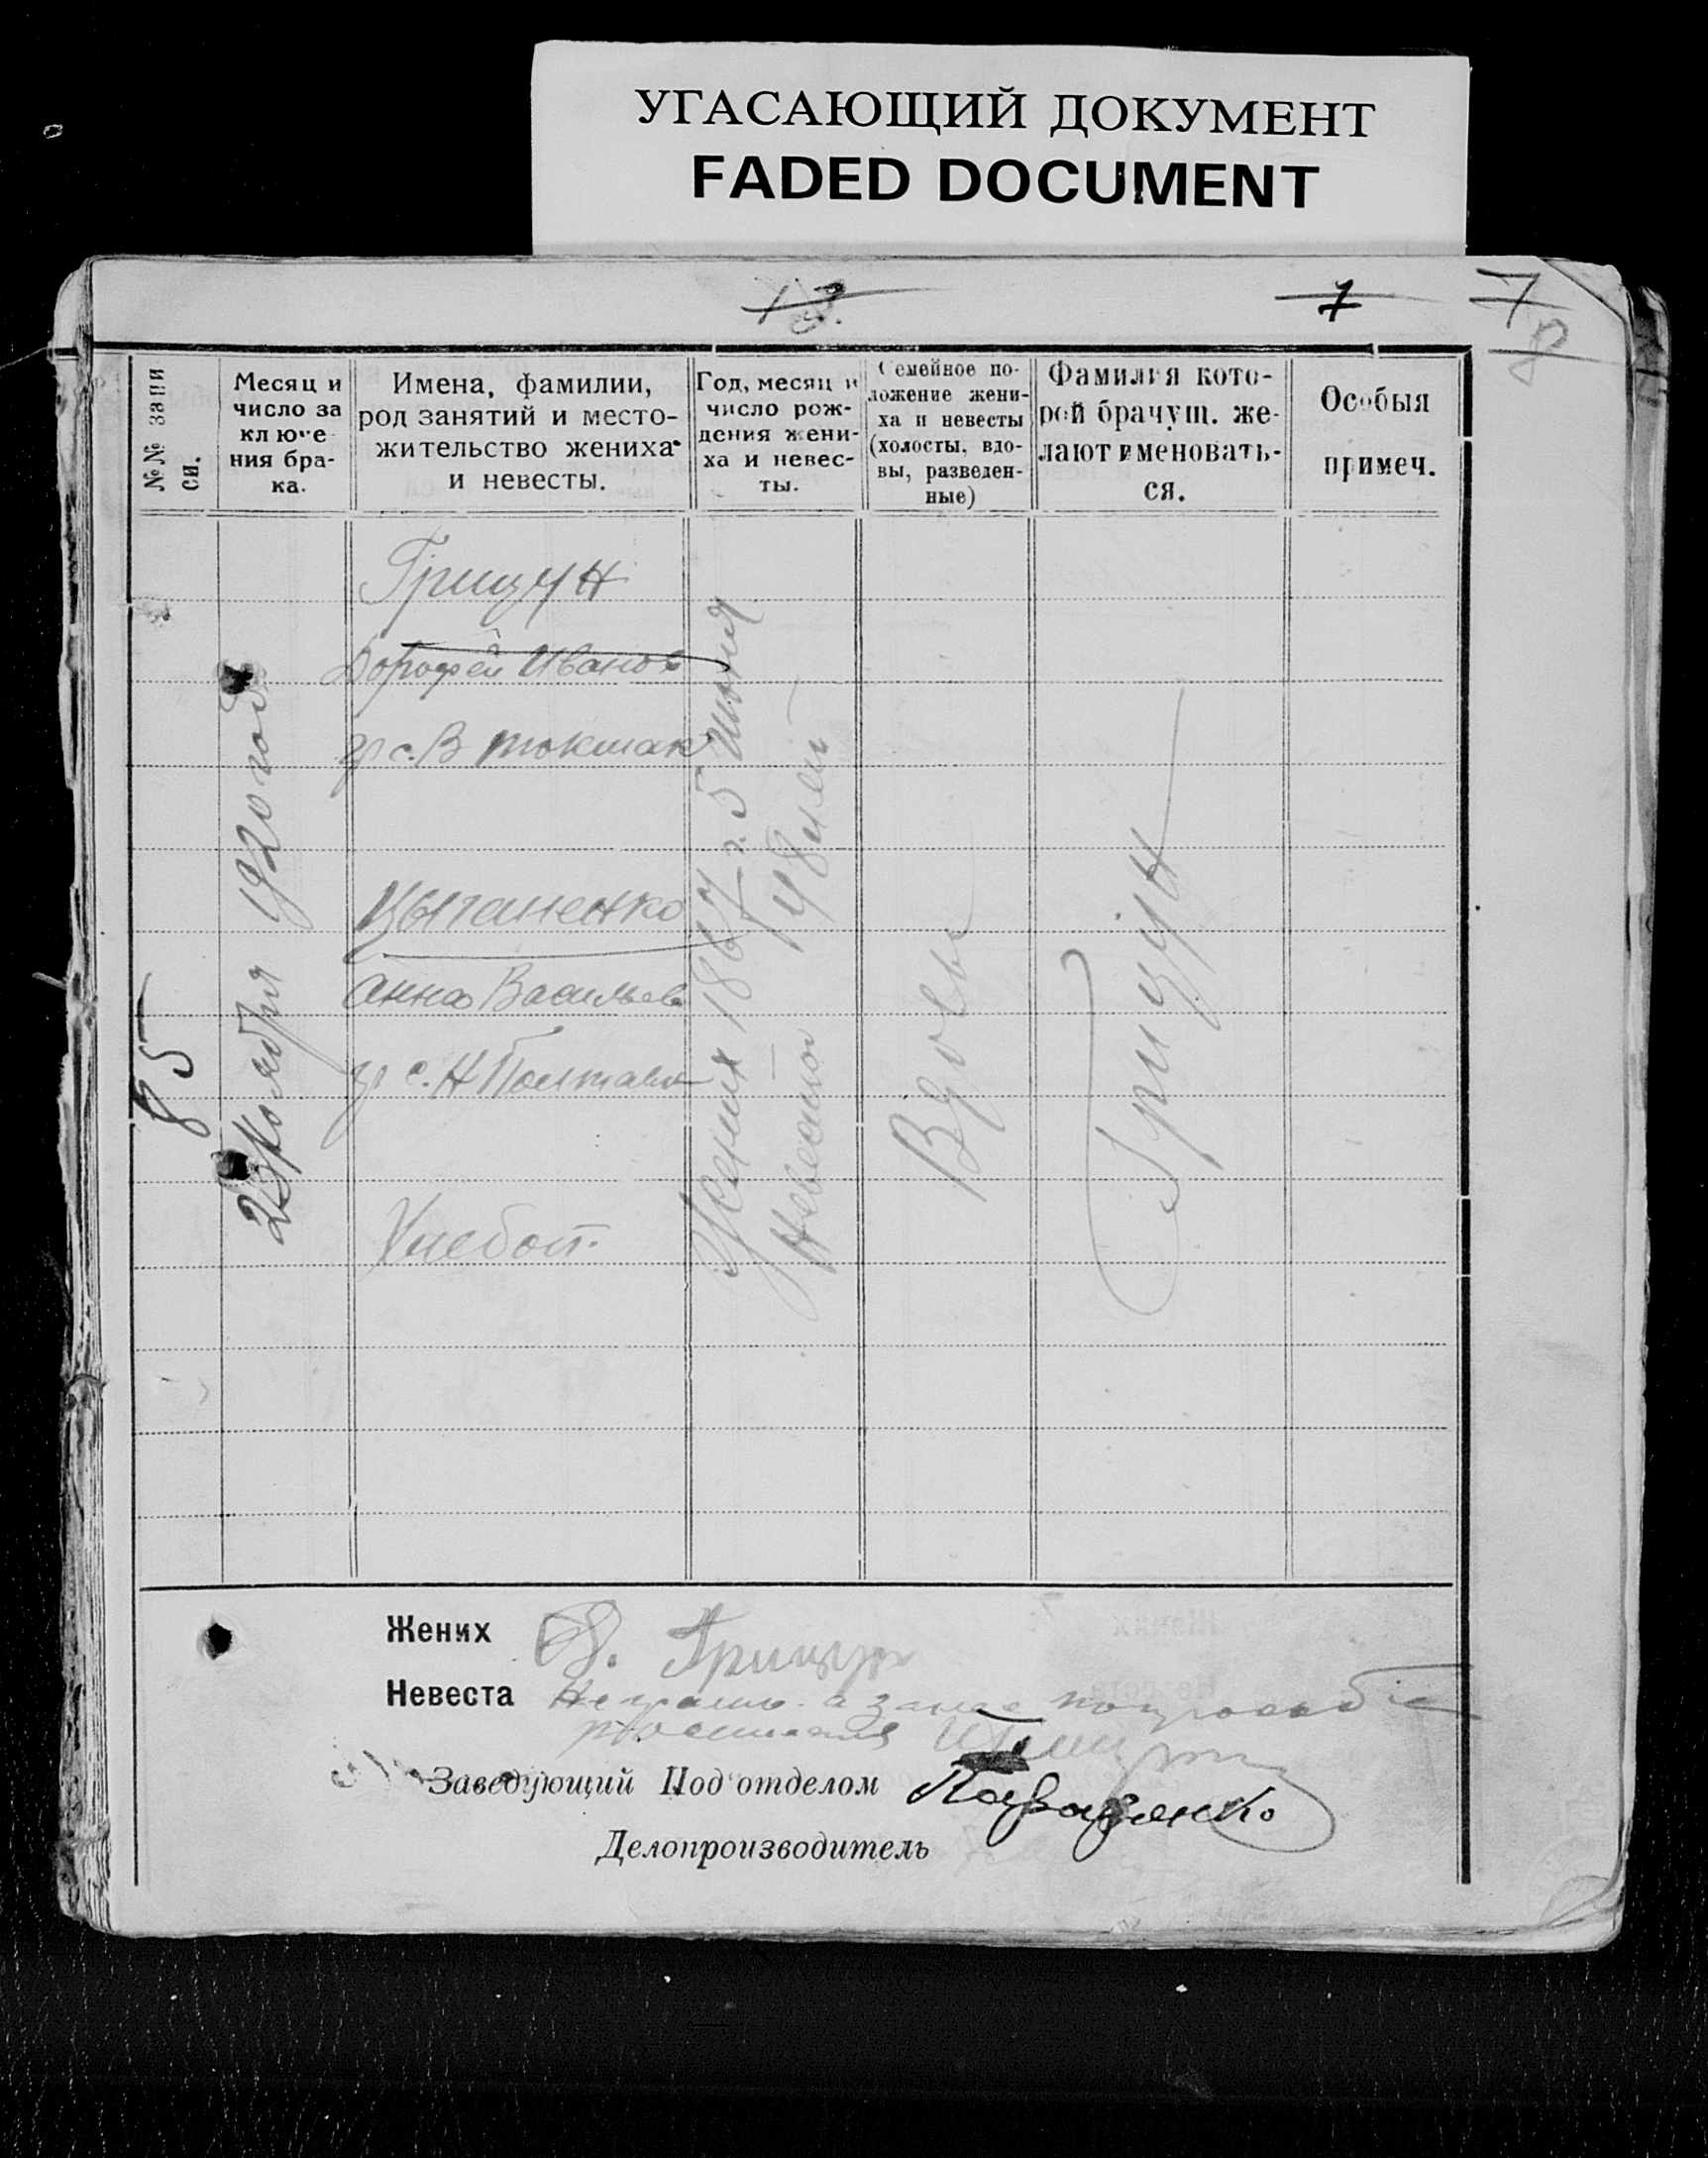 УГАСАЮЩИЙ ДОКУМЕНТ
FADED DOCUMENT
13.
7
7
8
№№ запи
си.
Месяц и
число за
ключе
ния бра-
ка.
Имена, фамилии,
род занятий и место-
жительство жениха
и невесты.
Год, месяц и
число рож-
дения жени-
ха и невес-
ты.
Семейное по-
ложение жени-
ха и невесты
(холосты, вдо-
вы, разведен-
ные)
Фамилия кото-
рой брачущ. же-
лают именовать-
ся.
Особыя
примеч.
85
23 Ноября 1920 года
Грицун
Дорофей Иванов
гр с. В токмак
Цыганенко
Анна Васильев
гр с. Н Полтавк
Хлебоп.
Жених 1867 г. 5 Июня
Невеста 48 лет
Вдовы
Грицун
Жених Д. Грицун
Невеста Неграмо. а за нее по просьбе
росписался
Заведующий Под'отделом
Делопроизводитель